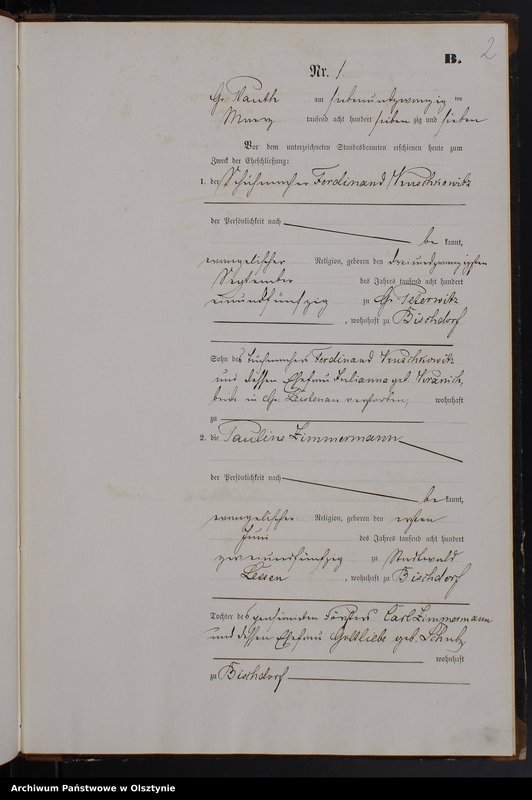 2
B.
Nr. 1
Gr. Plauth am siebenundzwanzig ten
Maerz tausend acht hundert sieben zig und sieben
Vor dem unterzeichneten Standesbeamten erschienen heute zum
Zweck der Eheschließung:
1. der Schuhmacher Ferdinand Kuschkowitz
der Persönlichkeit nach
be kannt,
evangelischer Religion, geboren den dreiundzwanzigsten
September des Jahres tausend acht hundert
einundfünfzig zu Gr. Peterwitz
, wohnhaft zu Bischdorf
Sohn des Ferdinand Kuschkowitz
und dessen Ehefrau Julianna geb.
beide in Gr. Leistenau verstorben, wohnhaft
zu
2. die Pauline Zimmermann
der Persönlichkeit nach
be kannt,
evangelischer Religion, geboren den ersten
Juni des Jahres tausend acht hundert
zweiundfünfzig zu Stadtwald
Lessen , wohnhaft zu Bischdorf
Tochter des pensionirten Försters Carl Zimmermann
und dessen Ehefrau Gottliebe geb. Schulz
wohnhaft
zu Bischdorf
Archiwum Państwowe w Olsztynie